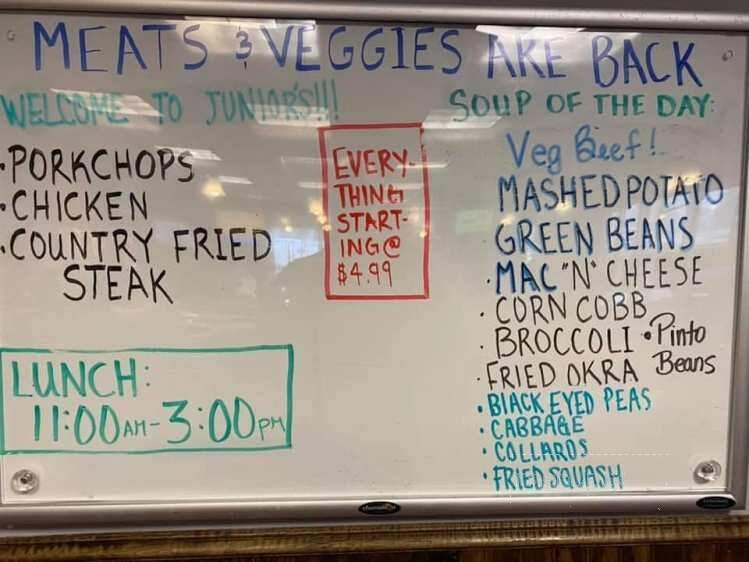 MEATS & VEGGIES ARE BACK
WELCOME TO JUNIORS!!!
• PORKCHOPS
• CHICKEN
• COUNTRY FRIED
STEAK
EVERY-
THING
START-
ING@
$4.99
LUNCH:
11:00AM-3:00PM
SOUP OF THE DAY:
Veg Beef!
MASHED POTATO
• GREEN BEANS
• MAC "N" CHEESE
• CORN COBB
• BROCCOLI • Pinto
Beans
• FRIED OKRA
• BLACK EYED PEAS
• CABBAGE
• COLLARDS
• FRIED SQUASH